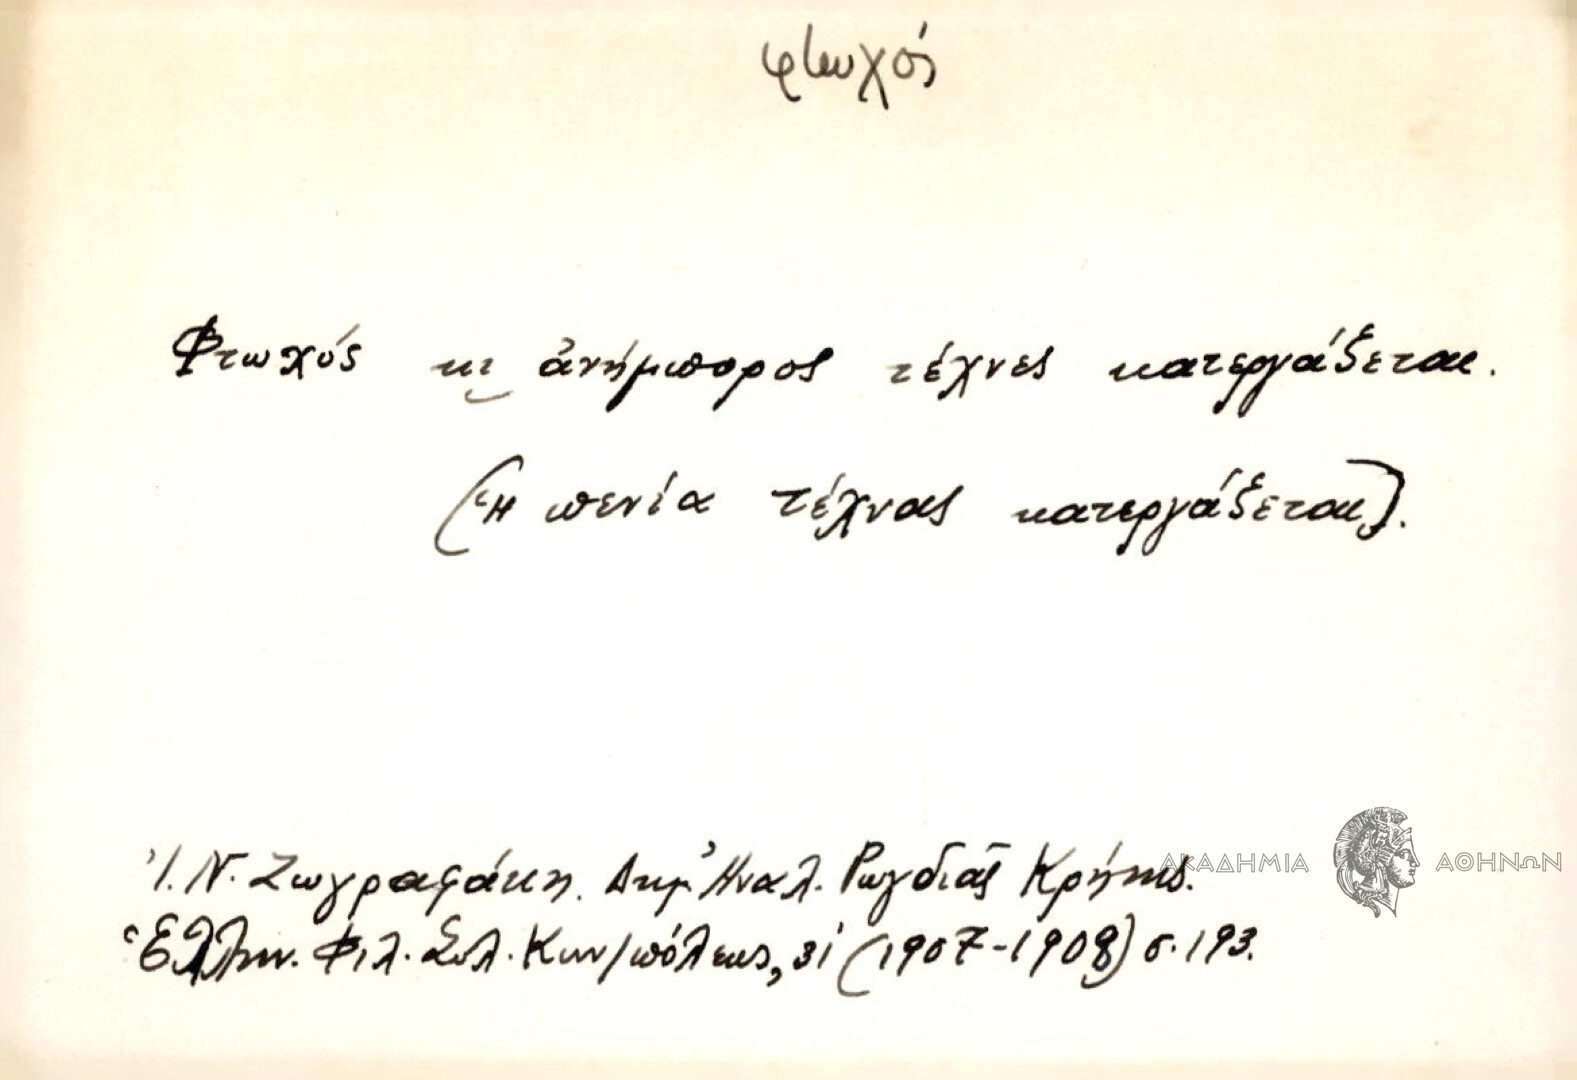 φτωχός
Φτωχός κι̮ ἀνήμπορος τέχνες κατεργάζεται.
(Ἡ πενία τέχνας κατεργάζεται).
Ἰ. Ν. Ζωγραφάκη. Δημ. Ἀναλ. Ρωγδιᾶς Κρήτης.
Ἑλλην. Φιλ. Συλ. Κων/πόλεως, 31 (1907-1908) σ. 193.
ΑΚΑΔΗΜΙΑ ΑΘΗΝΩΝ